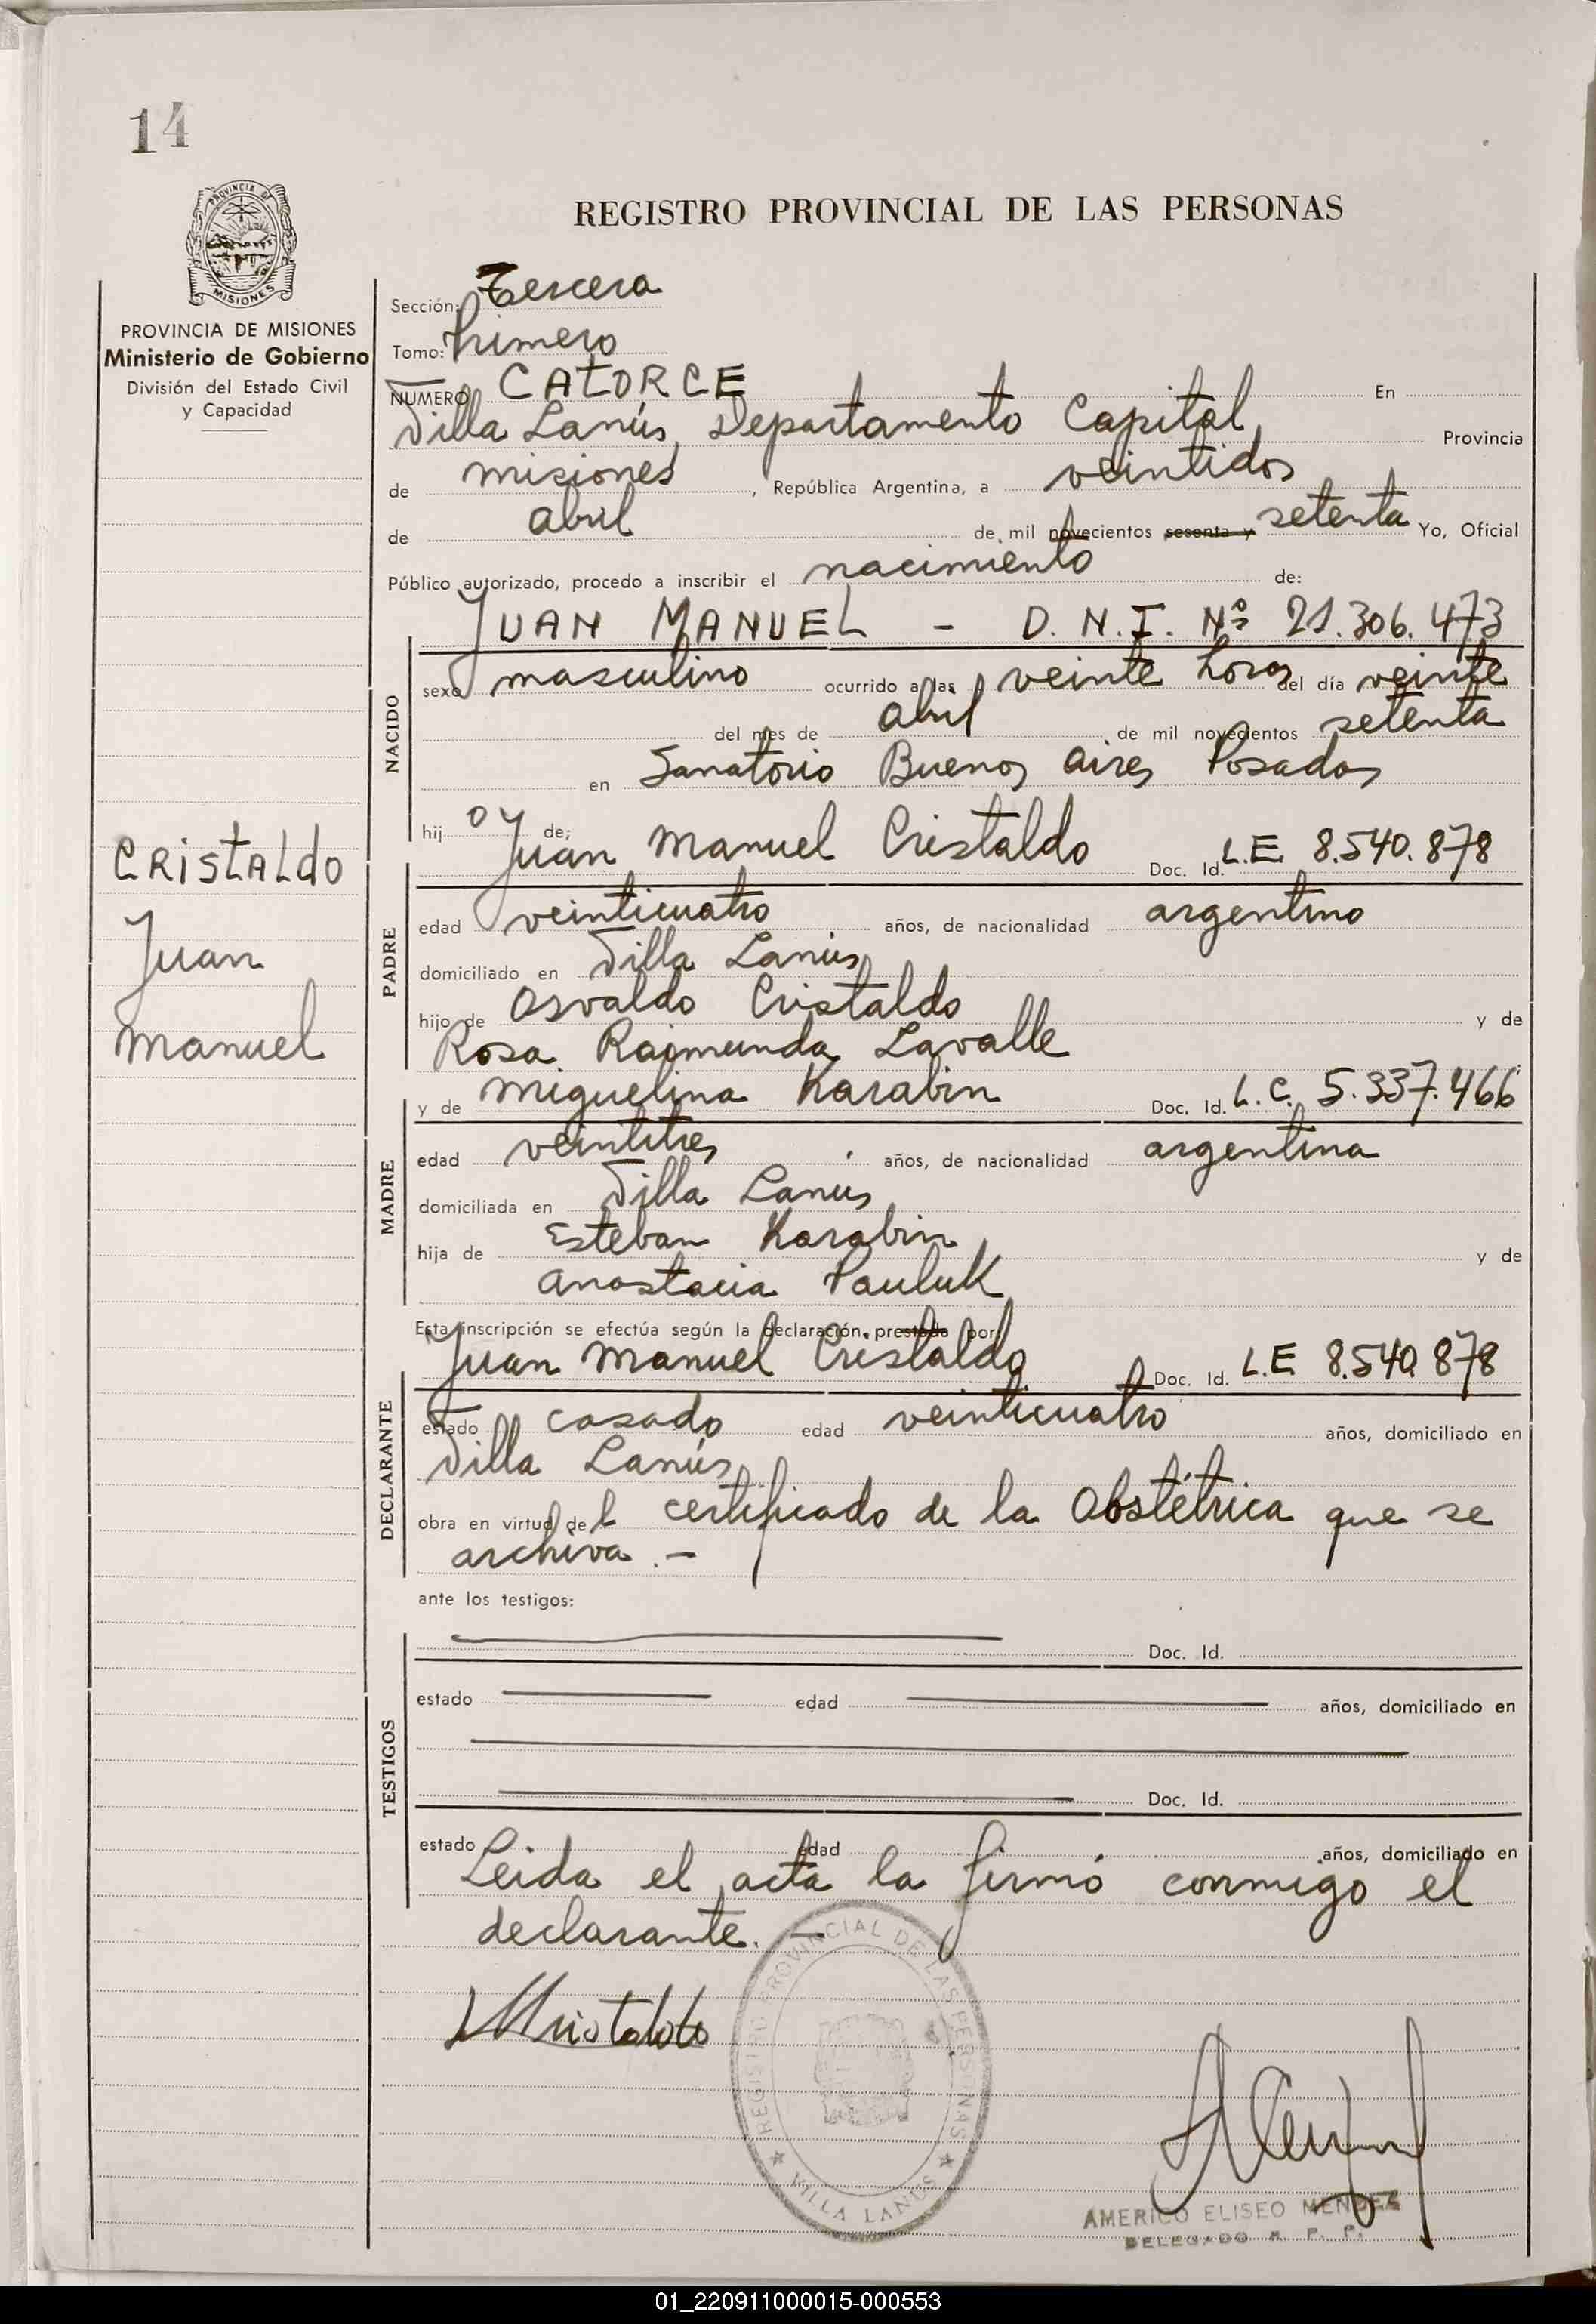 14
PROVINCIA DE
MISIONES
PROVINCIA DE MISIONES
Ministerio de Gobierno
División del Estado Civil
y Capacidad
CRISTALDO
Juan
Manuel
REGISTRO PROVINCIAL DE LAS PERSONAS
Sección: Tercera
Tomo: Primero
NUMERO CATORCE En
Villa Lanús, Departamento Capital, Provincia
de Misiones, República Argentina, a veintidos
de abril de mil novecientos sesenta y setenta Yo, Oficial
Público autorizado, procedo a inscribir el nacimiento de:
JUAN MANUEL - D. N. I. Nº 21.306.473
NACIDO
sexo masculino ocurrido a las veinte horas del día veinte
del mes de abril de mil novecientos setenta
en Sanatorio Buenos Aires Posadas
hijo de: Juan Manuel Cristaldo Doc. Id. L.E. 8.540.878
PADRE
edad veinticuatro años, de nacionalidad argentino
domiciliado en Villa Lanús
hijo de Osvaldo Cristaldo y de
Rosa Raimunda Lavalle
y de Miguelina Karabin Doc. Id. L.C. 5.337.466
MADRE
edad veintitres años, de nacionalidad argentina
domiciliada en Villa Lanús
hija de Esteban Karabin y de
Anastacia Pauluk
Esta inscripción se efectúa según la declaración prestada por:
Juan Manuel Cristaldo Doc. Id. L.E 8.540.878
DECLARANTE
estado casado edad veinticuatro años, domiciliado en
Villa Lanús
obra en virtud del certificado de la Obstétrica que se
archiva.-
ante los testigos:
Doc. Id.
TESTIGOS
estado edad años, domiciliado en
Doc. Id.
estado edad años, domiciliado en
Leida el acta la firmó conmigo el
declarante.-
REGISTRO PROVINCIAL DE LAS PERSONAS
VILLA LANUS
AMERICO ELISEO MENDEZ
DELEGADO R. P. P.
01_220911000015-000553